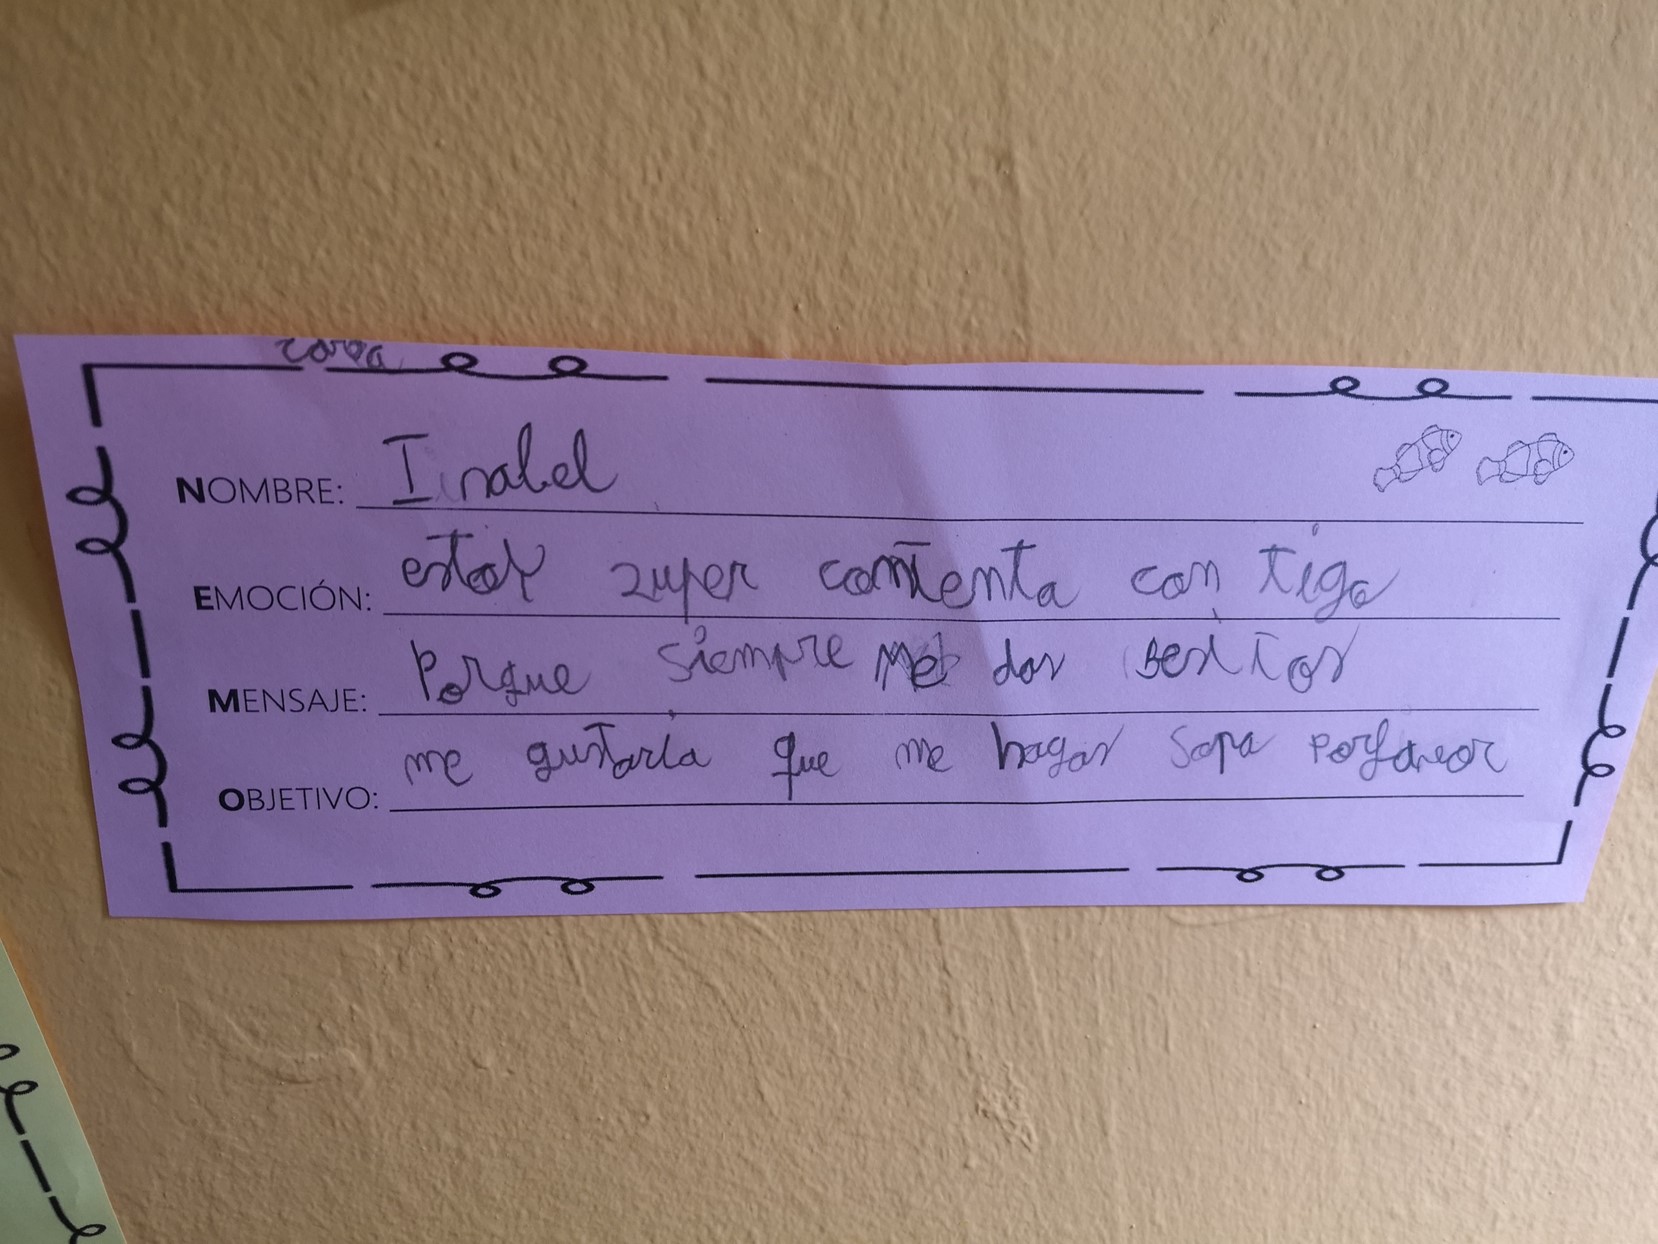 NOMBRE: Isabel
EMOCIÓN: estoy zuper contenta con tigo
MENSAJE: Porque siempre me das besitos
OBJETIVO: me gustaria que me hagas sopa porfavor